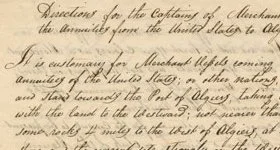 Directions for the Captains of Merchant
the Annuities from the United States to Alg
It is customary for Merchant Vessels coming
annuities of the United States; or other nations,
and Stand towards the Port of Algiers, taking
with the land to the Westward; not nearer than
some rocks 4 miles to the West of Algiers, at